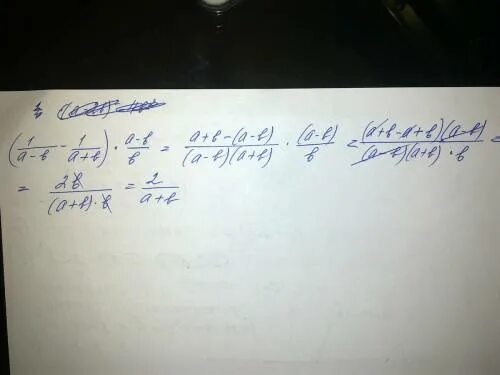 (1/(a-b) - 1/(a+b)) · (a-b)/b = (a+b-(a-b))/((a-b)(a+b)) · (a-b)/b = ((a+b-a+b)(a-b))/((a-b)(a+b)·b) =
= 2b/((a+b)·b) = 2/(a+b)